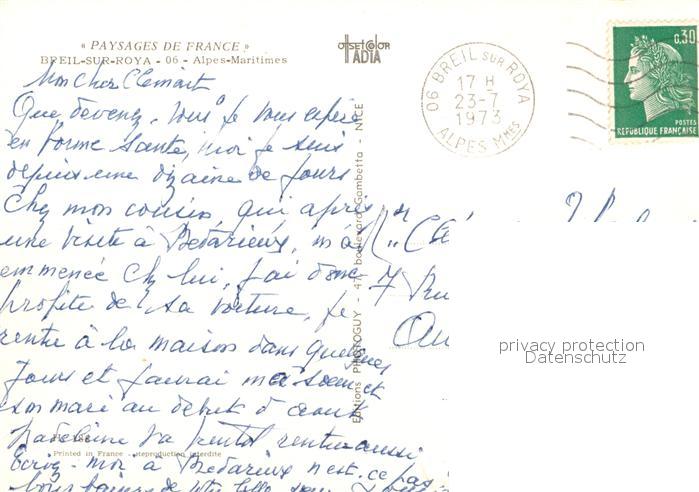 « PAYSAGES DE FRANCE »
BREIL-SUR-ROYA - 06 - Alpes-Maritimes
OFFSETCOLOR
ADIA
06 BREIL SUR ROYA
17 H
23-7
1973
ALPES MMES
0,30
POSTES
REPUBLIQUE FRANÇAISE
Mon cher Clemart
Que devenez-vous je vous espère
en forme santé, moi je suis
depuis une dizaine de jours
chez mon cousin, qui après
une visite à Bedarieux, m'a
emmenée chez lui, j'ai donc
profité de sa voiture, je
rentre à la maison dans quelques
jours et j'aurai ma soeur et
son mari au début d'aout
Madeleine va bientot rentrer aussi
Ecrivez-moi à Bedarieux n'est-ce pas
Editions PHOTOGUY - 47, boulevard Gambetta - NICE
Printed in France - Reproduction interdite
7 Ru
privacy protection
Datenschutz